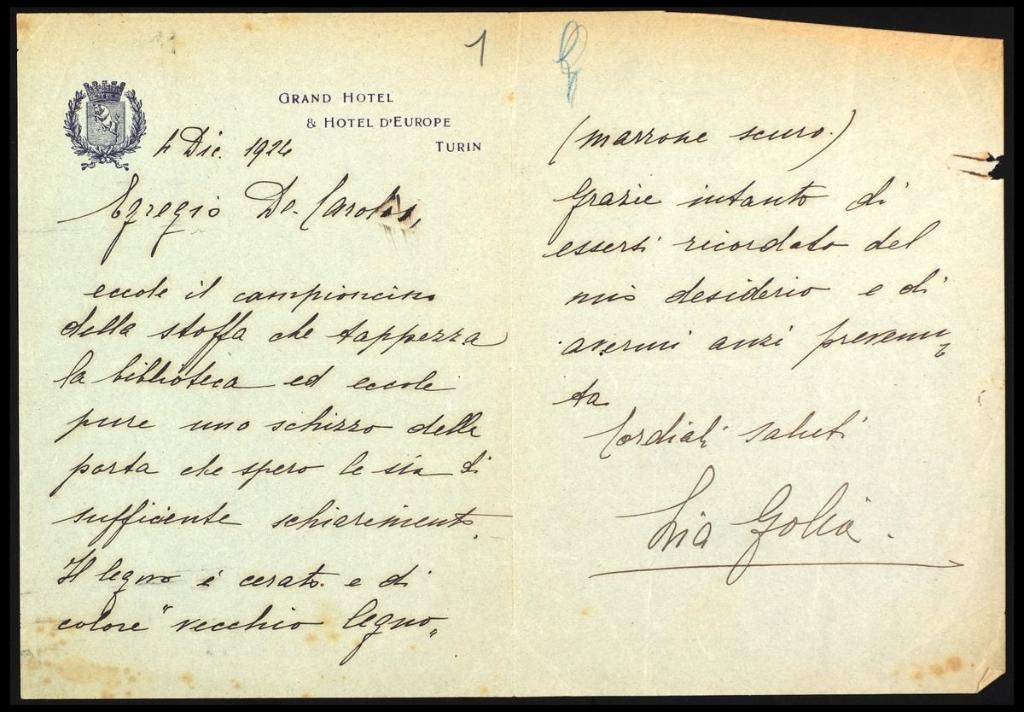 1
GRAND HOTEL
& HOTEL D'EUROPE
TURIN
4 Dic. 1924
Egregio De Carolis,
eccole il campioncino
della stoffa che tappezza
la biblioteca ed eccole
pure uno schizzo della
porta che spero le sia di
sufficiente schiarimento.
Il legno è cerato e di
colore "vecchio legno"
(marrone scuro.)
Grazie intanto di
essersi ricordato del
mio desiderio e di
avermi anzi prevenu-
ta
Cordiali saluti
Lia Golia.